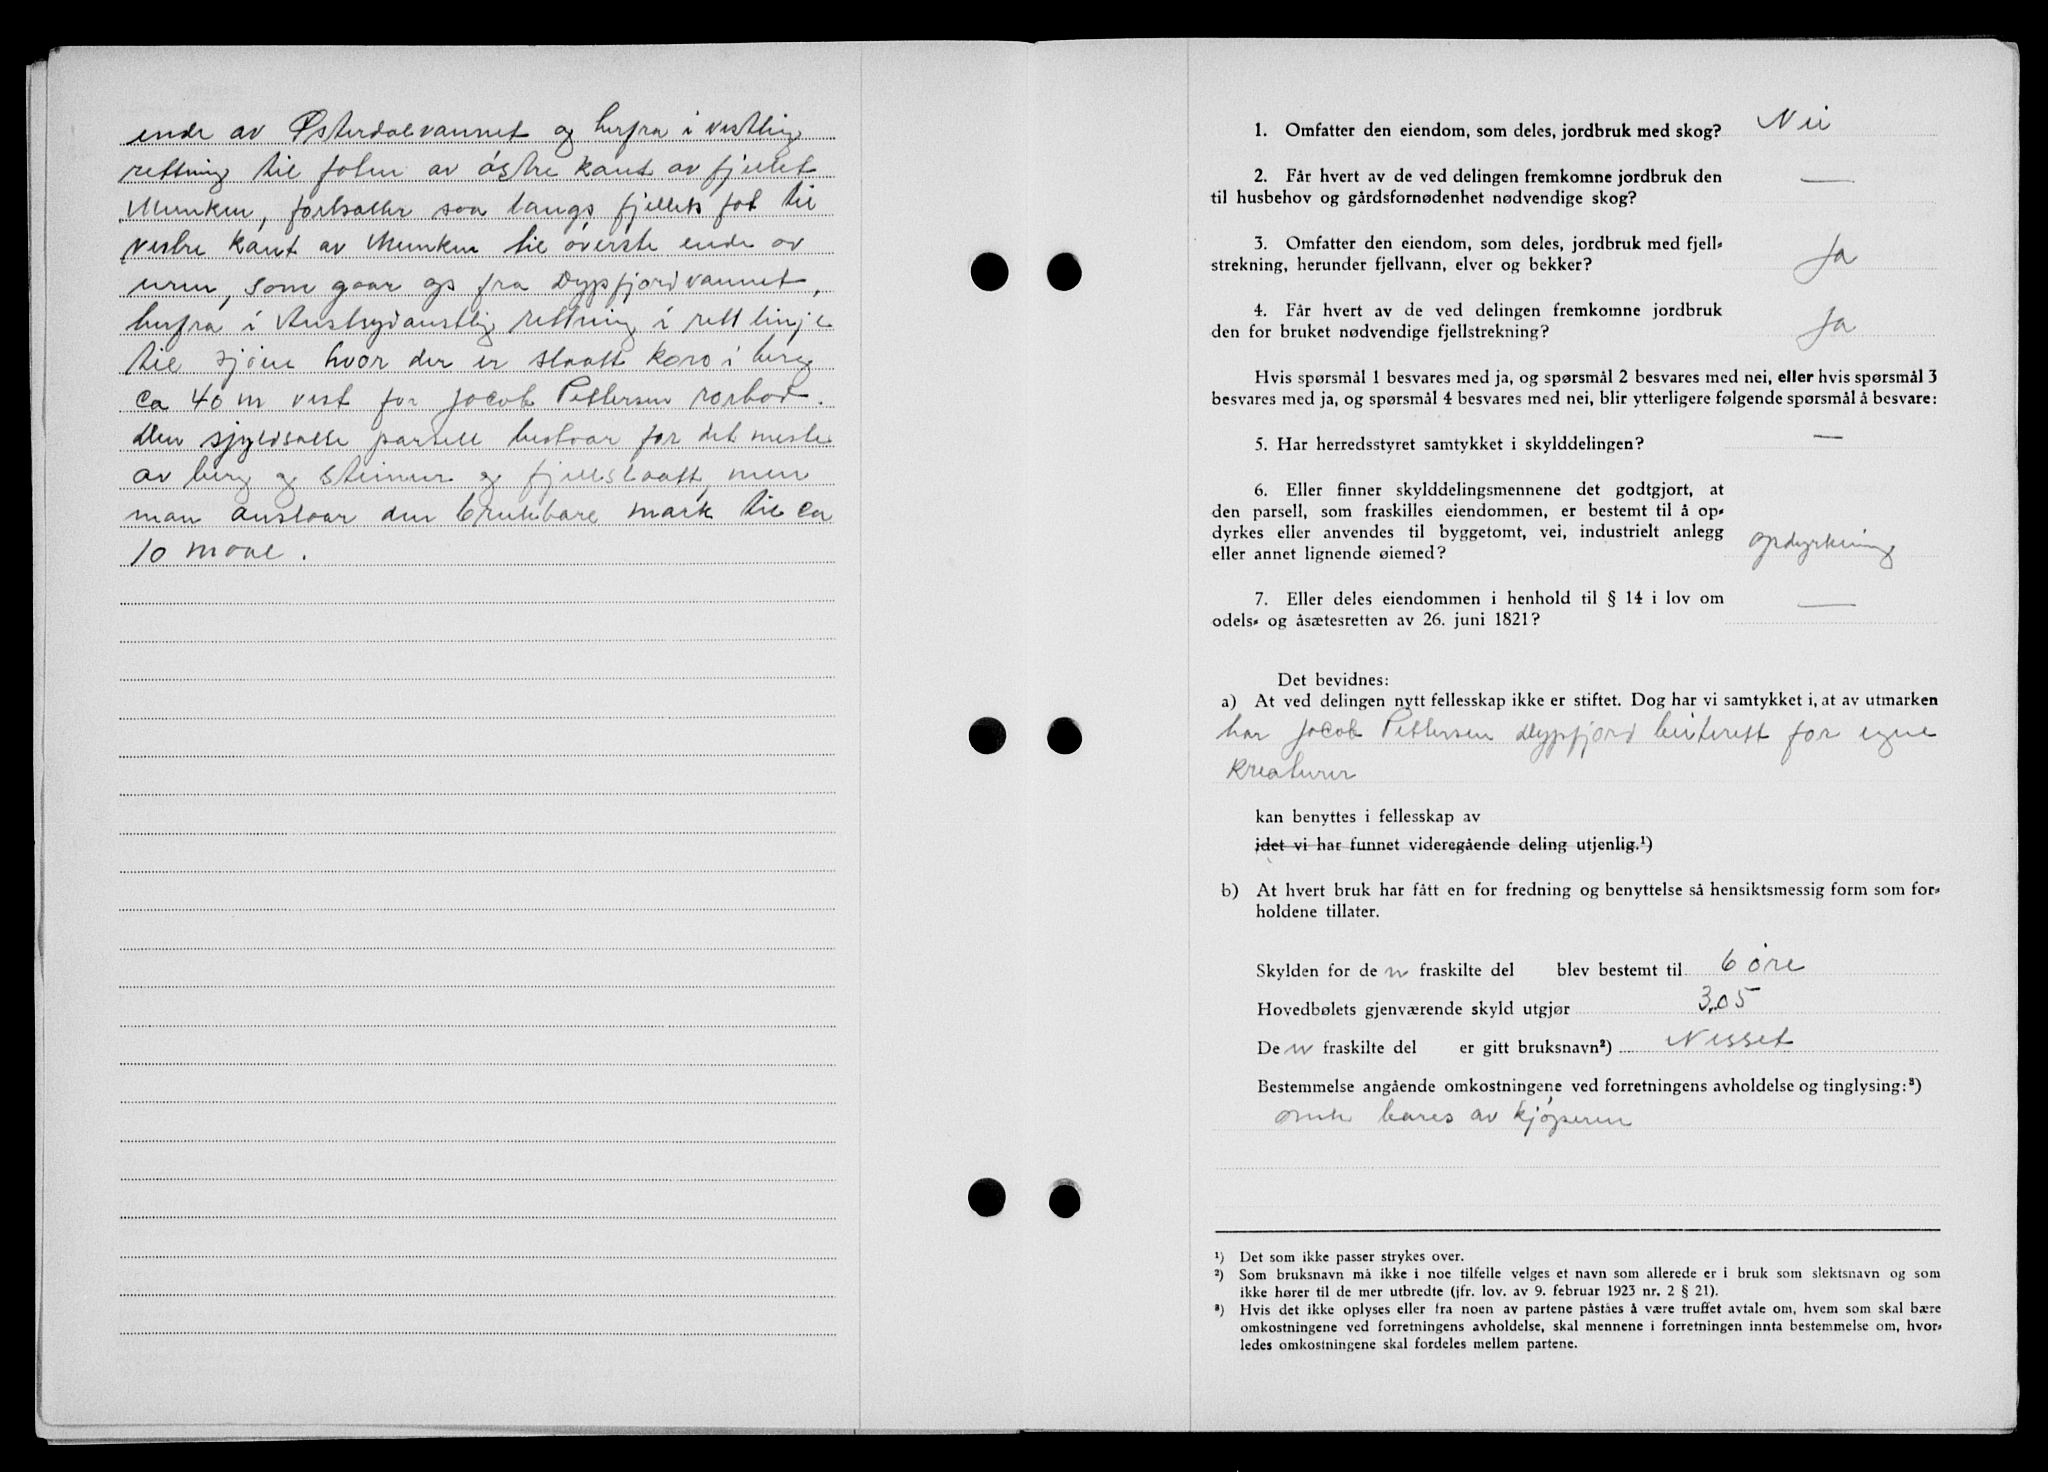 ende av Østerdalvannet og herfra i vestlig
rettning til foten av østre kant av fjellet
Munken, fortsetter saa langs fjellets fot til
vestre kant av Munken til øverste ende av
uren, som gaar op fra Dypfjordvannet,
herfra i rettning i rett linje
til sjøen hvor der er slaatt kors i berg
ca 40 m vest for Jacob Pettersen rorbod.
Den sjyldsatte parsell bestaar for det meste
av berg og steinur og fjellslaatt, men
man anslaar den brukbare mark til ca
10 maal.
1. Omfatter den eiendom, som deles, jordbruk med skog? Nei
2. Får hvert av de ved delingen fremkomne jordbruk den —
til husbehov og gårdsfornødenhet nødvendige skog?
3. Omfatter den eiendom, som deles, jordbruk med fjell-
strekning, herunder fjellvann, elver og bekker? Ja
4. Får hvert av de ved delingen fremkomne jordbruk
den for bruket nødvendige fjellstrekning? Ja
Hvis spørsmål 1 besvares med ja, og spørsmål 2 besvares med nei, eller hvis spørsmål 3
besvares med ja, og spørsmål 4 besvares med nei, blir ytterligere følgende spørsmål å besvare:
5. Har herredsstyret samtykket i skylddelingen? —
6. Eller finner skylddelingsmennene det godtgjort, at
den parsell, som fraskilles eiendommen, er bestemt til å op-
dyrkes eller anvendes til byggetomt, vei, industrielt anlegg
eller annet lignende øiemed? opdyrkning
7. Eller deles eiendommen i henhold til § 14 i lov om —
odels- og åsætesretten av 26. juni 1821?
Det bevidnes:
a) At ved delingen nytt fellesskap ikke er stiftet. Dog har vi samtykket i, at av utmarken
har Jacob Pettersen Dypfjord beiterett for egne
kreaturer
kan benyttes i fellesskap av
idet vi har funnet videregående deling utjenlig.¹)
b) At hvert bruk har fått en for fredning og benyttelse så hensiktsmessig form som for-
holdene tillater.
Skylden for den fraskilte del blev bestemt til 6 øre
Hovedbølets gjenværende skyld utgjør 3,05
Den fraskilte del er gitt bruksnavn²) Nesset
Bestemmelse angående omkostningene ved forretningens avholdelse og tinglysing:³)
omk bæres av kjøperen
¹) Det som ikke passer strykes over.
²) Som bruksnavn må ikke i noe tilfelle velges et navn som allerede er i bruk som slektsnavn og som
ikke hører til de mer utbredte (jfr. lov. av 9. februar 1923 nr. 2 § 21).
³) Hvis det ikke oplyses eller fra noen av partene påståes å være truffet avtale om, hvem som skal bære
omkostningene ved forretningens avholdelse, skal mennene i forretningen innta bestemmelse om, hvor-
ledes omkostningene skal fordeles mellem partene.